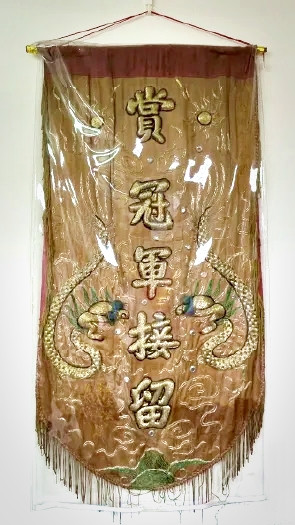 賞冠軍接留